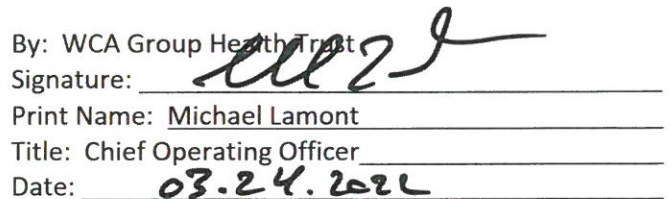 By: WCA Group Health Trust
Signature:
Print Name: Michael Lamont
Title: Chief Operating Officer
Date: 03.24.2022